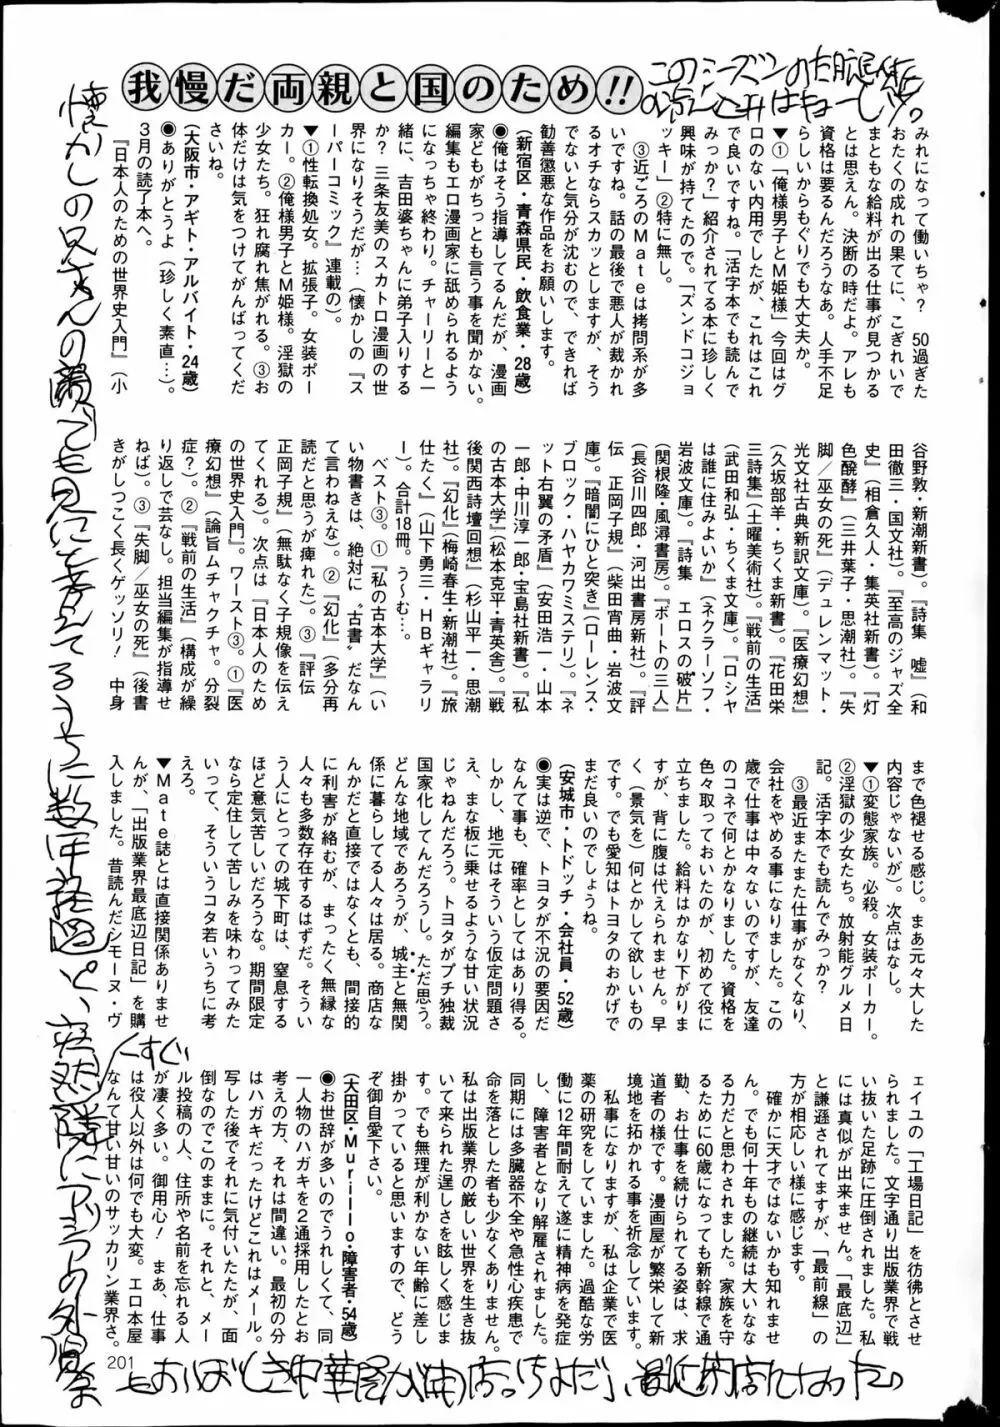 我慢だ両親と国のため!!
みれになって働いちゃ? 50過ぎた
おたくの成れの果てに、こぎれいで
まともな給料が出る仕事が見つかる
とは思えん。決断の時だよ。アレも
資格は要るんだろうなあ。人手不足
らしいからもぐりでも大丈夫か。
▼①「俺様男子とM姫様」今回はグ
ロのない内用でしたが、これはこれ
で良いですね。「活字本でも読んで
みっか?」紹介されてる本に珍しく
興味が持てたので。「ズンドコジョ
ッキー」②特に無し。
③近ごろのMateは拷問系が多
いですね。話の最後で悪人が裁かれ
るオチならスカッとしますが、そう
でないと気分が沈むので、できれば
勧善懲悪な作品をお願いします。
(新宿区・青森県民・飲食業・28歳)
◉俺はそう指導してるんだが、漫画
家どもがちっとも言う事を聞かない。
編集もエロ漫画家に舐められるよう
になっちゃ終わり。チャーリーと一
緒に、吉田婆ちゃんに弟子入りする
か? 三条友美のスカトロ漫画の世
界になりそうだが…(懐かしの『ス
ーパーコミック』連載の)。
▼①性転換処女。拡張子。女装ポー
カー。②俺様男子とM姫様。淫獄の
少女たち。狂れ腐れ焦がれる。③お
体だけは気をつけてがんばってくだ
さいね。
(大阪市・アギト・アルバイト・24歳)
◉ありがとうよ(珍しく素直…)。
3月の読了本へ。
『日本人のための世界史入門』(小
谷野敦・新潮新書)。『詩集 嘘』(和
田徹三・国文社)。『至高のジャズ全
史』(相倉久人・集英社新書)。『灯
色醗酵』(三井葉子・思潮社)。『失
脚/巫女の死』(デュレンマット・
光文社古典新訳文庫)。『医療幻想』
(久坂部羊・ちくま新書)。『花田栄
三詩集』(土曜美術社)。『戦前の生活』
(武田和弘・ちくま文庫)。『ロシヤ
は誰に住みよいか』(ネクラーソフ・
岩波文庫)。『詩集 エロスの破片』
(関根隆・風濤書房)。『ボートの三人』
(長谷川四郎・河出書房新社)。『評
伝 正岡子規』(柴田宵曲・岩波文
庫)。『暗闇にひと突き』(ローレンス・
ブロック・ハヤカワミステリ)。『ネ
ット右翼の矛盾』(安田浩一・山本
一郎・中川淳一郎・宝島社新書)。『私
の古本大学』(松本克平・青英舎)。『戦
後関西詩壇回想』(杉山平一・思潮
社)。『幻化』(梅崎春生・新潮社)。『旅
仕たく』(山下勇三・HBギャラリ
ー)。合計18冊。う〜む…。
ベスト③。①『私の古本大学』(い
い物書きは、絶対に〝古書〟だなん
て言わねえな)。②『幻化』(多分再
読だと思うが痺れた)。③『評伝
正岡子規』(無駄なく子規像を伝え
てくれる)。次点は『日本人のため
の世界史入門』。ワースト③。①『医
療幻想』(論旨ムチャクチャ。分裂
症?)。②『戦前の生活』(構成が繰
り返しで芸なし。担当編集が指導せ
ねば)。③『失脚/巫女の死』(後書
きがしつこく長くゲッソリ! 中身
まで色褪せる感じ。まあ元々大した
内容じゃないが)。次点はなし。
▼①変態家族。必殺。女装ポーカー。
②淫獄の少女たち。放射能グルメ日
記。活字本でも読んでみっか?
③最近またまた仕事がなくなり、
会社をやめる事になりました。この
歳で仕事は中々ないのですが、友達
のコネで何とかなりました。資格を
色々取っておいたのが、初めて役に
立ちました。給料はかなり下がりま
すが、背に腹は代えられません。早
く(景気を)何とかして欲しいもの
です。でも愛知はトヨタのおかげで
まだ良いのでしょうね。
(安城市・トドッチ・会社員・52歳)
◉実は逆で、トヨタが不況の要因だ
なんて事も、確率としてはあり得る。
しかし、地元はそういう仮定問題さ
え、まな板に乗せるような甘い状況
じゃねんだろう。トヨタがプチ独裁
国家化してんだろうし。ただ思う。
どんな地域であろうが、城主と無関
係に暮らしてる人々は居る。商店な
んかだと直接ではなくとも、間接的
に利害が絡むが、まったく無縁な
人々も多数存在するはずだ。そうい
う人にとっての城下町は、窒息する
ほど意気苦しいだろうな。期間限定
なら定住して苦しみを味わってみた
いって、そういうコタ若いうちに考
えろ。
▼Mate誌とは直接関係ありませ
んが、「出版業界最底辺日記」を購
入しました。昔読んだシモーヌ・ヴ
ェイユの「工場日記」を彷彿とさせ
られました。文字通り出版業界で戦
い抜いた足跡に圧倒されました。私
には真似が出来ません。「最底辺」
と謙遜されてますが、「最前線」の
方が相応しい様に感じます。
確かに天才ではないかも知れませ
ん。でも何十年もの継続は大いな
る力だと思わされました。家族を守
るために60歳になっても新幹線で通
勤、お仕事を続けられてる姿は、求
道者の様です。漫画屋が繁栄して新
境地を拓かれる事を祈念しています。
私事になりますが、私は企業で医
薬の研究をしていました。過酷な労
働に12年間耐えて遂に精神病を発症
し、障害者となり解雇されました。
同期には多臓器不全や急性心疾患で
命を落とした者も少なくありません。
私は出版業界の厳しい世界を生き抜
いて来られた逞しさを眩しく感じま
す。でも無理が利かない年齢に差し
掛かっていると思いますので、どう
ぞ御自愛下さい。
(大田区・Murillo・障害者・54歳)
◉お世辞が多いのでうれしくて、同
一人物のハガキを2通採用したんかと
考えの方、それは間違い。最初の分
はハガキだったけどこれはメール。
写した後でそれに気付いたたが、面
倒なのでこのままに。それと、メー
ル投稿の人、住所や名前を忘れる人
が凄く多い。御用心! まあ、仕事
は役人以外は何でも大変。エロ本屋
なんて甘い甘いのサッカリン業界さ。
201